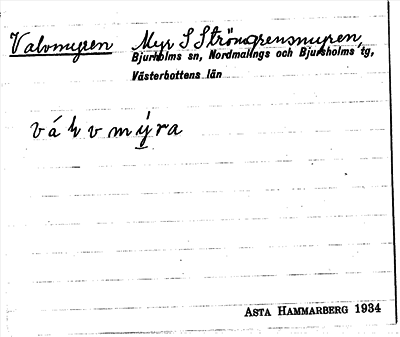 Valvmyren Myr S Strömgrensmyren,
Bjurholms sn, Nordmalings och Bjurholms tg,
Västerbottens län
v á ɫ v m ý r a
ASTA HAMMARBERG 1934